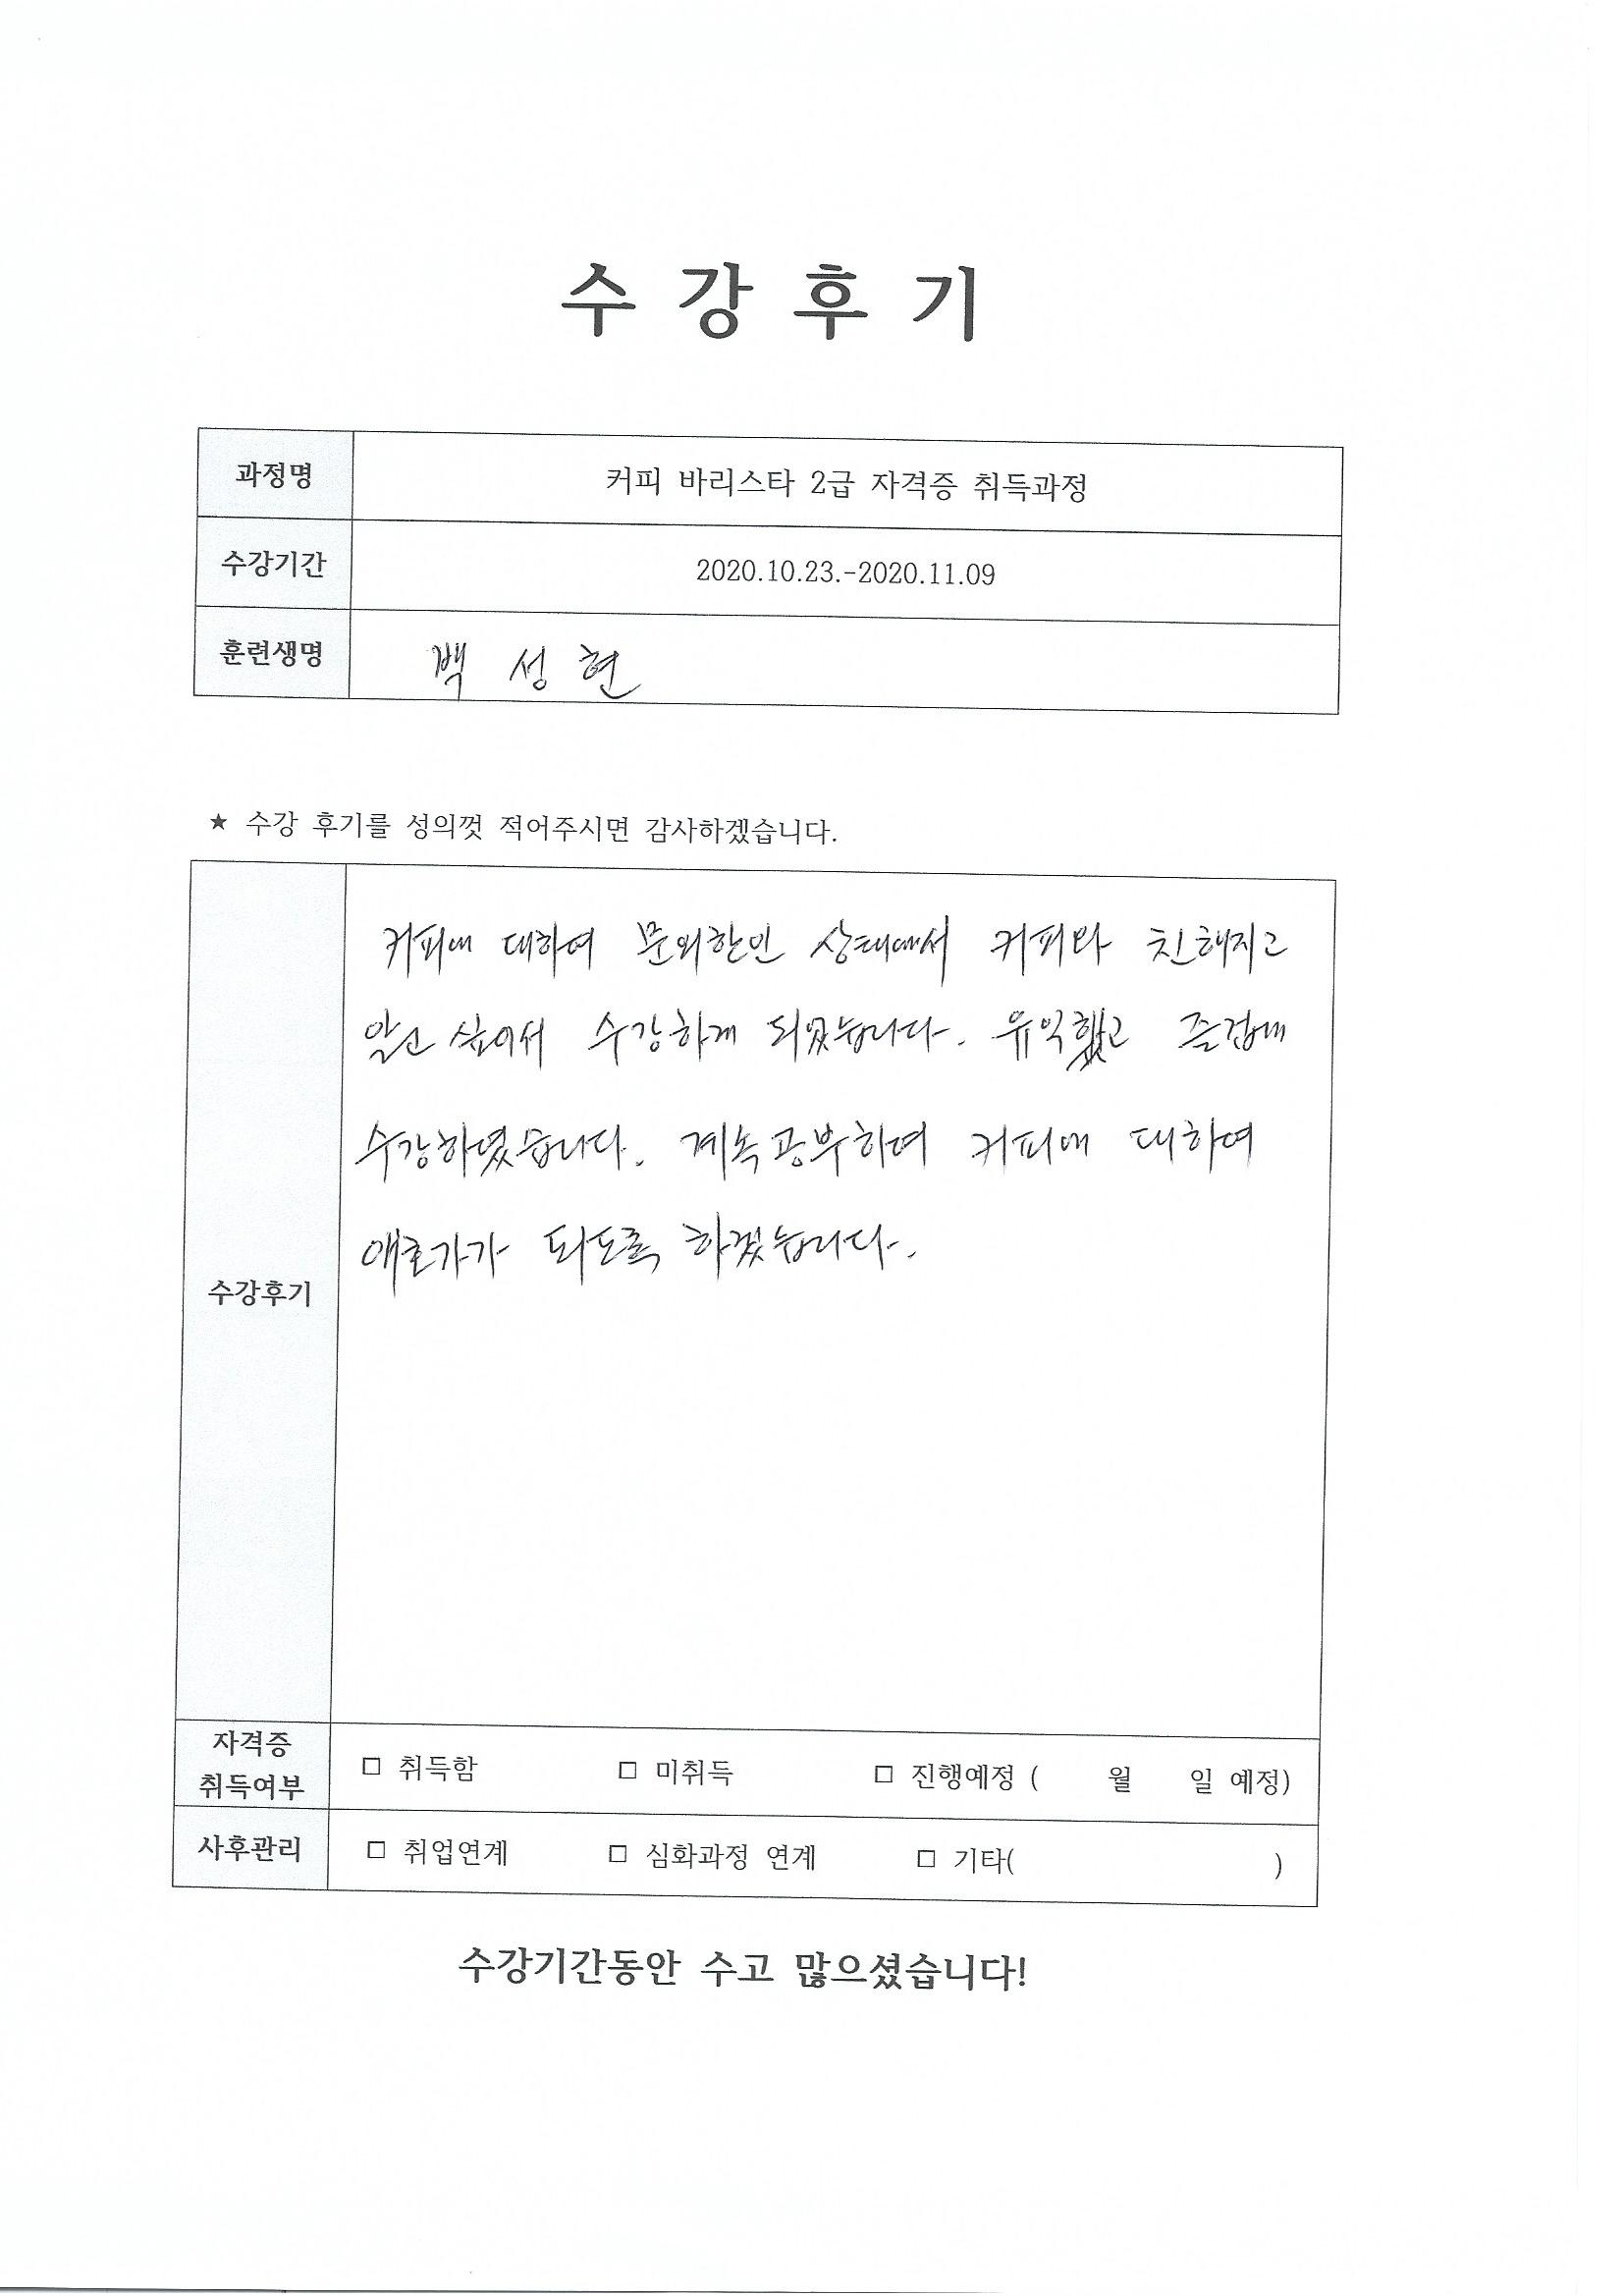 수 강 후 기
과정명 커피 바리스타 2급 자격증 취득과정
수강기간 2020.10.23.-2020.11.09
훈련생명 백 성 현
★ 수강 후기를 성의껏 적어주시면 감사하겠습니다.
커피에 대하여 문외한인 상태에서 커피와 친해지고
알고 싶어서 수강하게 되었습니다. 유익했고 즐겁게
수강하였습니다. 계속 공부하여 커피에 대하여
수강후기
애호가가 되도록 하겠습니다.
자격증
취득여부
□ 취득함 □ 미취득 □ 진행예정 ( 월 일 예정)
사후관리 □ 취업연계 □ 심화과정 연계 □ 기타( )
수강기간동안 수고 많으셨습니다!